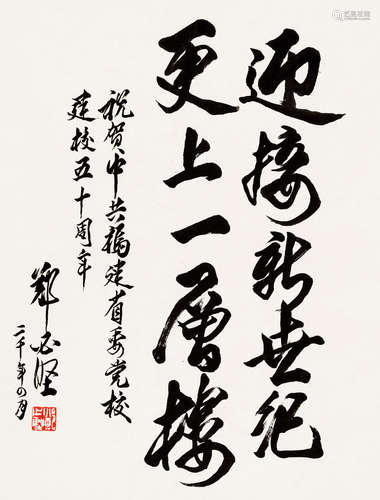 迎接新世纪
更上一层楼
祝贺中共福建省委党校
建校五十周年
郑必坚
二千年四月